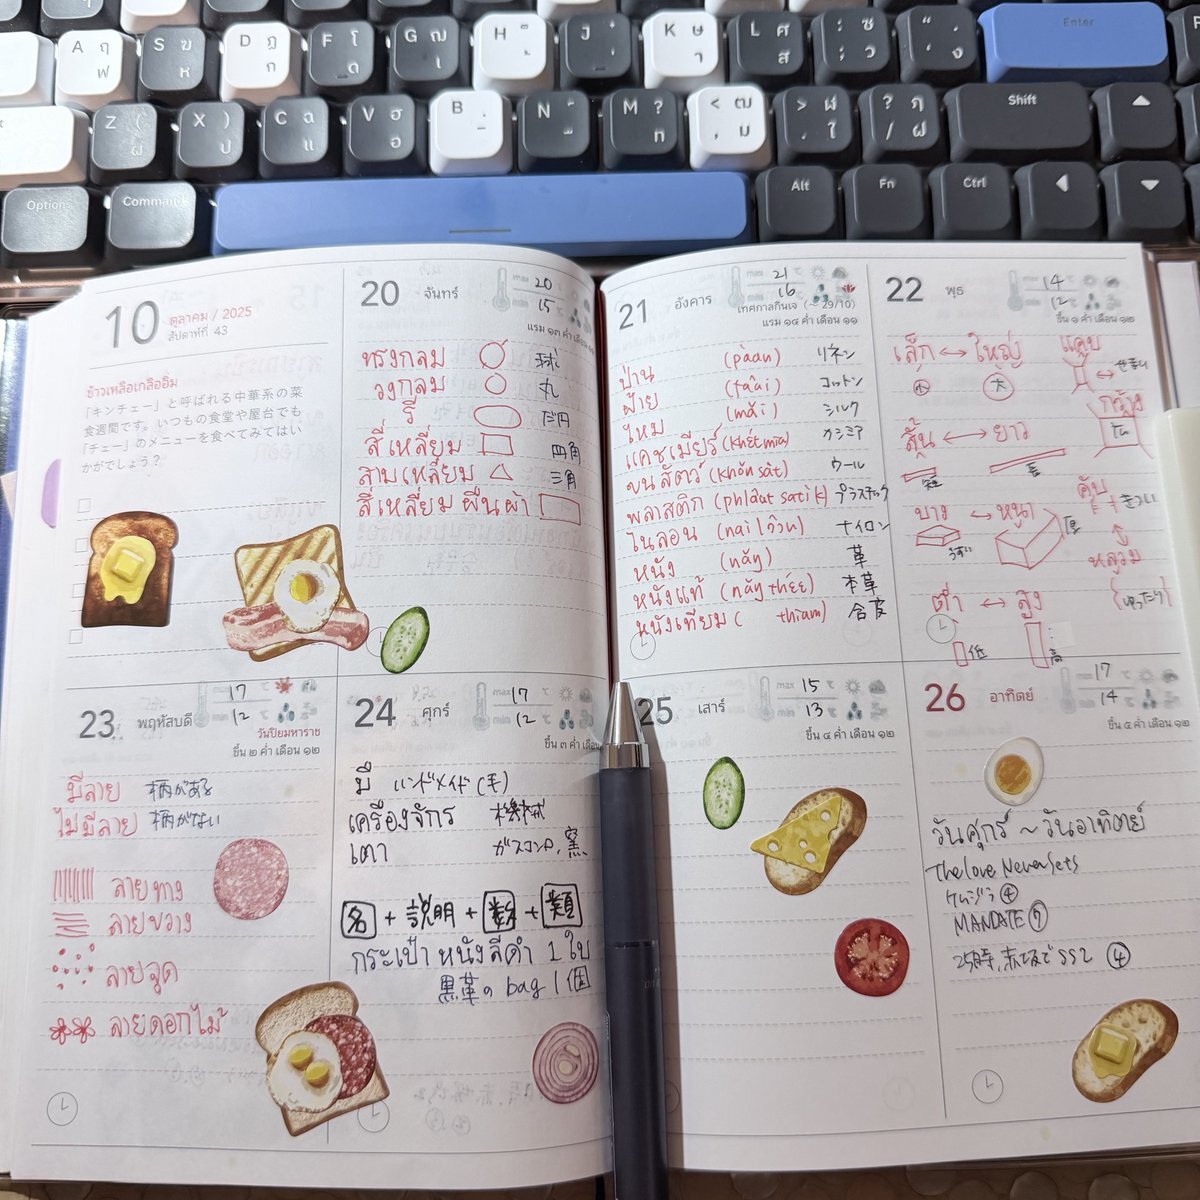 A ฤ ฟ
S ฆ ห
D ฏ ก
F โ ด
G ฌ เ
H
J
K ษ า
L ศ ส
: ซ ; ว
Enter
Z ( ผ
X ) ป
C ฉ แ
V ฮ อ
B
N
M ? ท
< ฒ , ม
> ฬ . ใ
? ฦ / ฝ
Shift
Option
Command
Alt
Fn
Ctrl
10
ตุลาคม / 2025
สัปดาห์ที่ 43
ข้าวเหลือเกลืออิ่ม
「キンチェー」と呼ばれる中華系の菜
食週間です。いつもの食堂や屋台でも
「チェー」のメニューを食べてみてはい
かがでしょう？
20 จันทร์
max 20 ℃
min 15 ℃
แรม ๑๓ ค่ำ เดือน ๑๑
ทรงกลม 球
วงกลม 丸
รี だ円
สี่เหลี่ยม 四角
สามเหลี่ยม 三角
สี่เหลี่ยมผืนผ้า
21 อังคาร
max 21 ℃
min 16 ℃
เทศกาลกินเจ (～29/10)
แรม ๑๔ ค่ำ เดือน ๑๑
ป่าน (pàan) リネン
ฝ้าย (fâai) コットン
ไหม (mǎi) シルク
แคชเมียร์ (khétmia) カシミア
ขนสัตว์ (khǒn sàt) ウール
พลาสติก (phláat satìk) プラスチック
ไนลอน (nailôn) ナイロン
หนัง (nǎŋ) 革
หนังแท้ (nǎŋ thɛ́ɛ) 本革
หนังเทียม ( thiam) 合皮
22 พุธ
max 14 ℃
min 12 ℃
ขึ้น ๑ ค่ำ เดือน ๑๒
เล็ก ↔ ใหญ่
小 大
แคบ
↔ せまい
กว้าง
สั้น ↔ ยาว
短 長
คับ きつい
บาง ↔ หนา
うすい 厚
หลวม
(ゆったり)
ต่ำ ↔ สูง
低 高
23 พฤหัสบดี
max 17 ℃
min 12 ℃
วันปิยมหาราช
ขึ้น ๒ ค่ำ เดือน ๑๒
มีลาย 柄がある
ไม่มีลาย 柄がない
ลายทาง
ลายขวาง
ลายจุด
ลายดอกไม้
24 ศุกร์
max 17 ℃
min 12 ℃
ขึ้น ๓ ค่ำ เดือน ๑๒
มือ ハンドメイド (手)
เครื่องจักร 機械
เตา ガスコンロ, 窯
名 + 説明 + 数 + 類
กระเป๋าหนังสีดำ 1 ใบ
黒革の bag 1個
25 เสาร์
max 15 ℃
min 13 ℃
ขึ้น ๔ ค่ำ เดือน ๑๒
26 อาทิตย์
max 17 ℃
min 14 ℃
ขึ้น ๕ ค่ำ เดือน ๑๒
วันศุกร์ ~ วันอาทิตย์
The love Never Sets
④
MANDATE ⑨
25時, 赤坂で SS2 ④